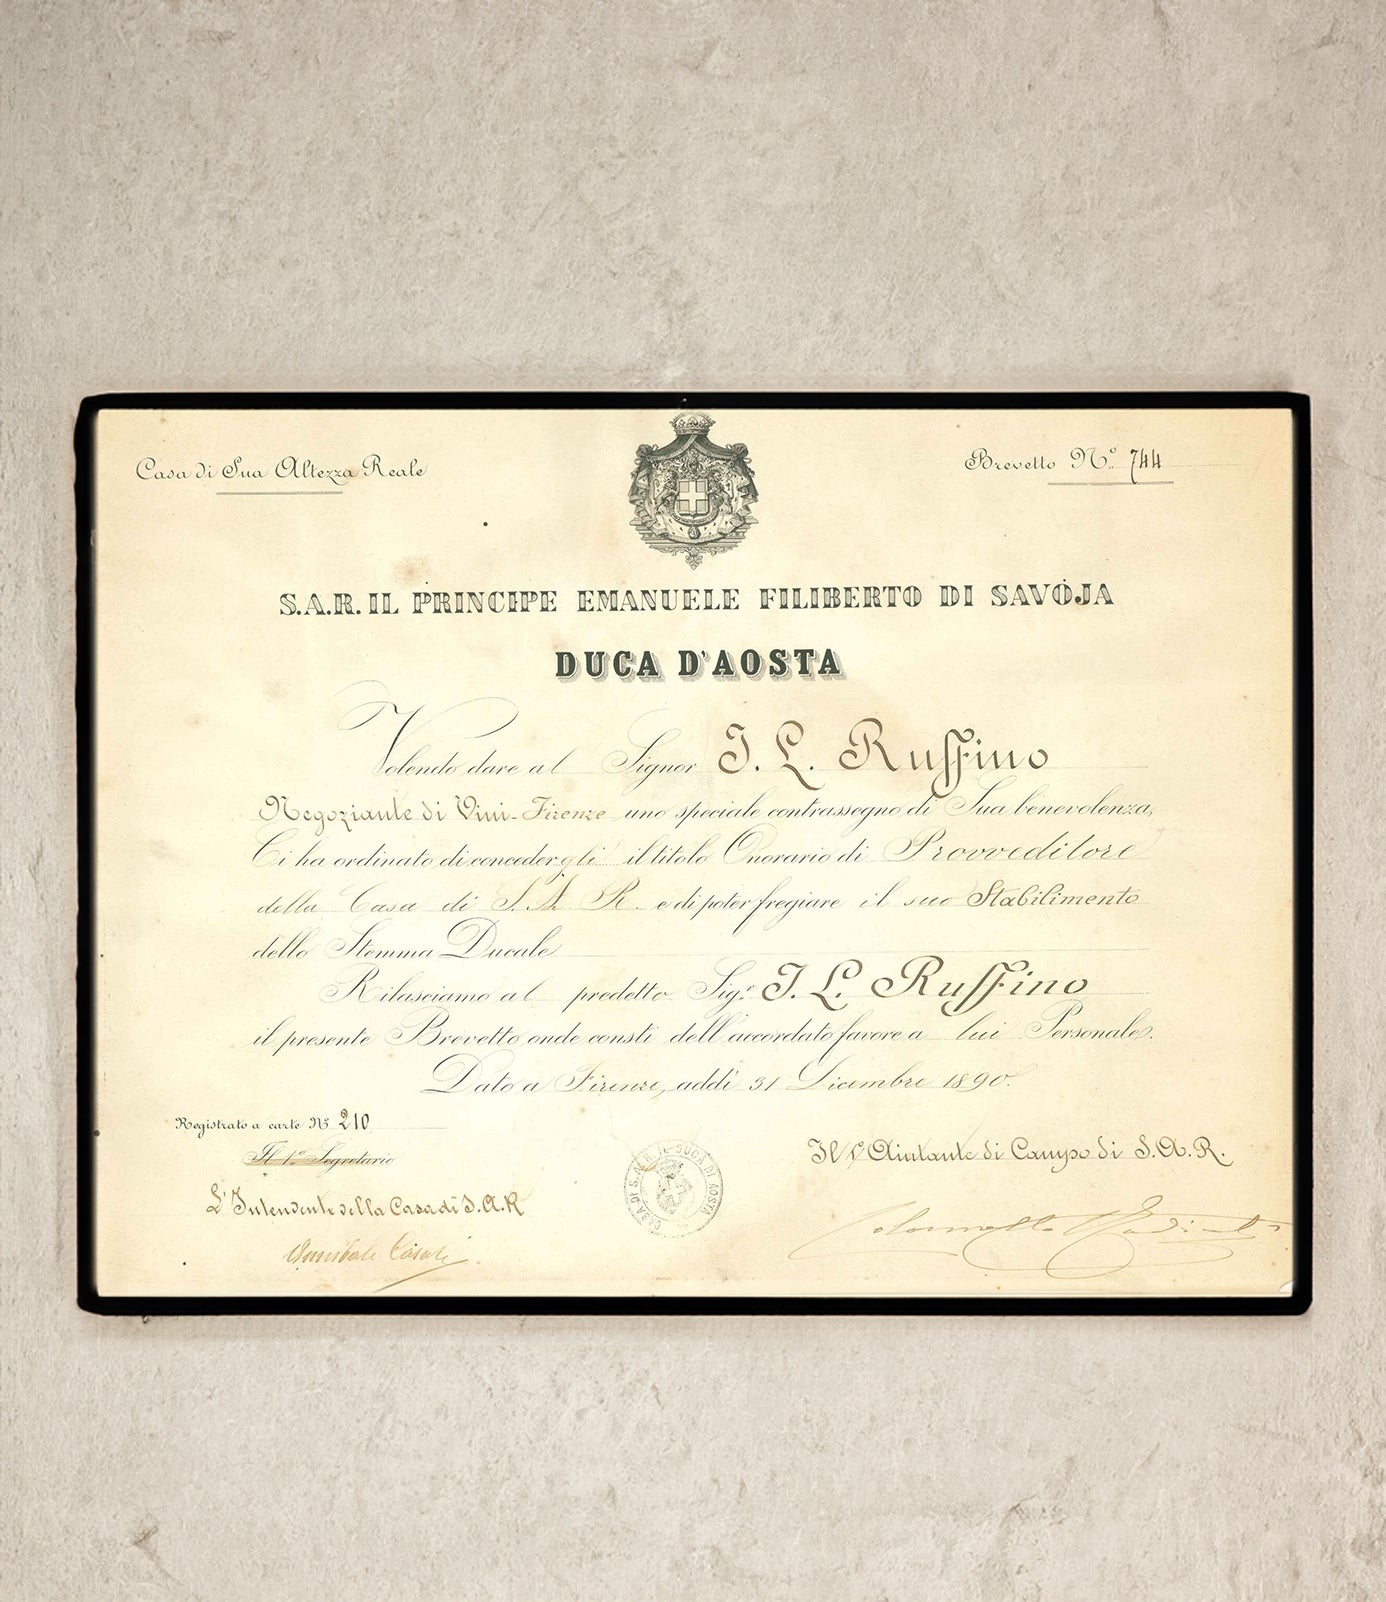 Casa di Sua Altezza Reale
Brevetto N.º 744
S.A.R. IL PRINCIPE EMANUELE FILIBERTO DI SAVOJA
DUCA D'AOSTA
Volendo dare al Signor I. L. Ruffino
Negoziante di Vini-Firenze uno speciale contrassegno di Sua benevolenza,
Ci ha ordinato di concedergli il titolo Onorario di Provveditore
della Casa di S. A. R. e di poter fregiare il suo Stabilimento
dello Stemma Ducale
Rilasciamo al predetto Sig.r I. L. Ruffino
il presente Brevetto onde consti dell'accordato favore a lui Personale.
Dato a Firenze, addì 31 Dicembre 1890.
Registrato a carte N.º 210
Il 1.º Segretario
L'Intendente della Casa di S.A.R
Annibale Casati
Il 1.º Aiutante di Campo di S.A.R.
Colonnello
CASA DI S.A.R. IL DUCA DI AOSTA